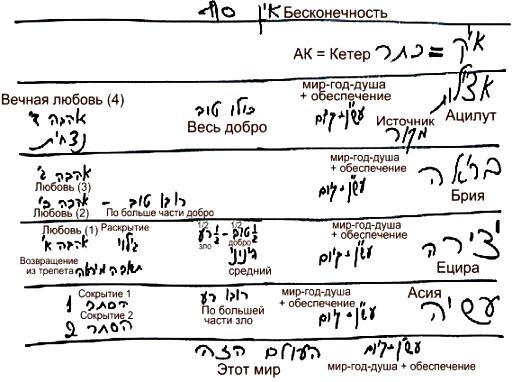 אין סוף Бесконечность
АК = Кетер א"ק = כתר
мир-год-душа
+ обеспечение
Вечная любовь (4)
אהבה ד'
נצחית
כולו טוב
Весь добро
Источник
מקור
אצילות
Ацилут
мир-год-душа
+ обеспечение
אהבה ג'
Любовь (3)
אהבה ב' - רובו טוב
Любовь (2) По больше части добро
בריאה
Брия
мир-год-душа
+ обеспечение
Любовь (1) Раскрытие
אהבה א' גילוי
1/2 зло 1/2 добро
1/2 רע - 1/2 טוב
בינוני
средний
Возвращение
из трепета
תשובה מיראה
יצירה
Ецира
мир-год-душа
+ обеспечение
Сокрытие 1
1 הסתר
Сокрытие 2
2 הסתר
רובו רע
По большей
части зло
Асия
עשיה
העולם הזה
Этот мир
мир-год-душа + обеспечение